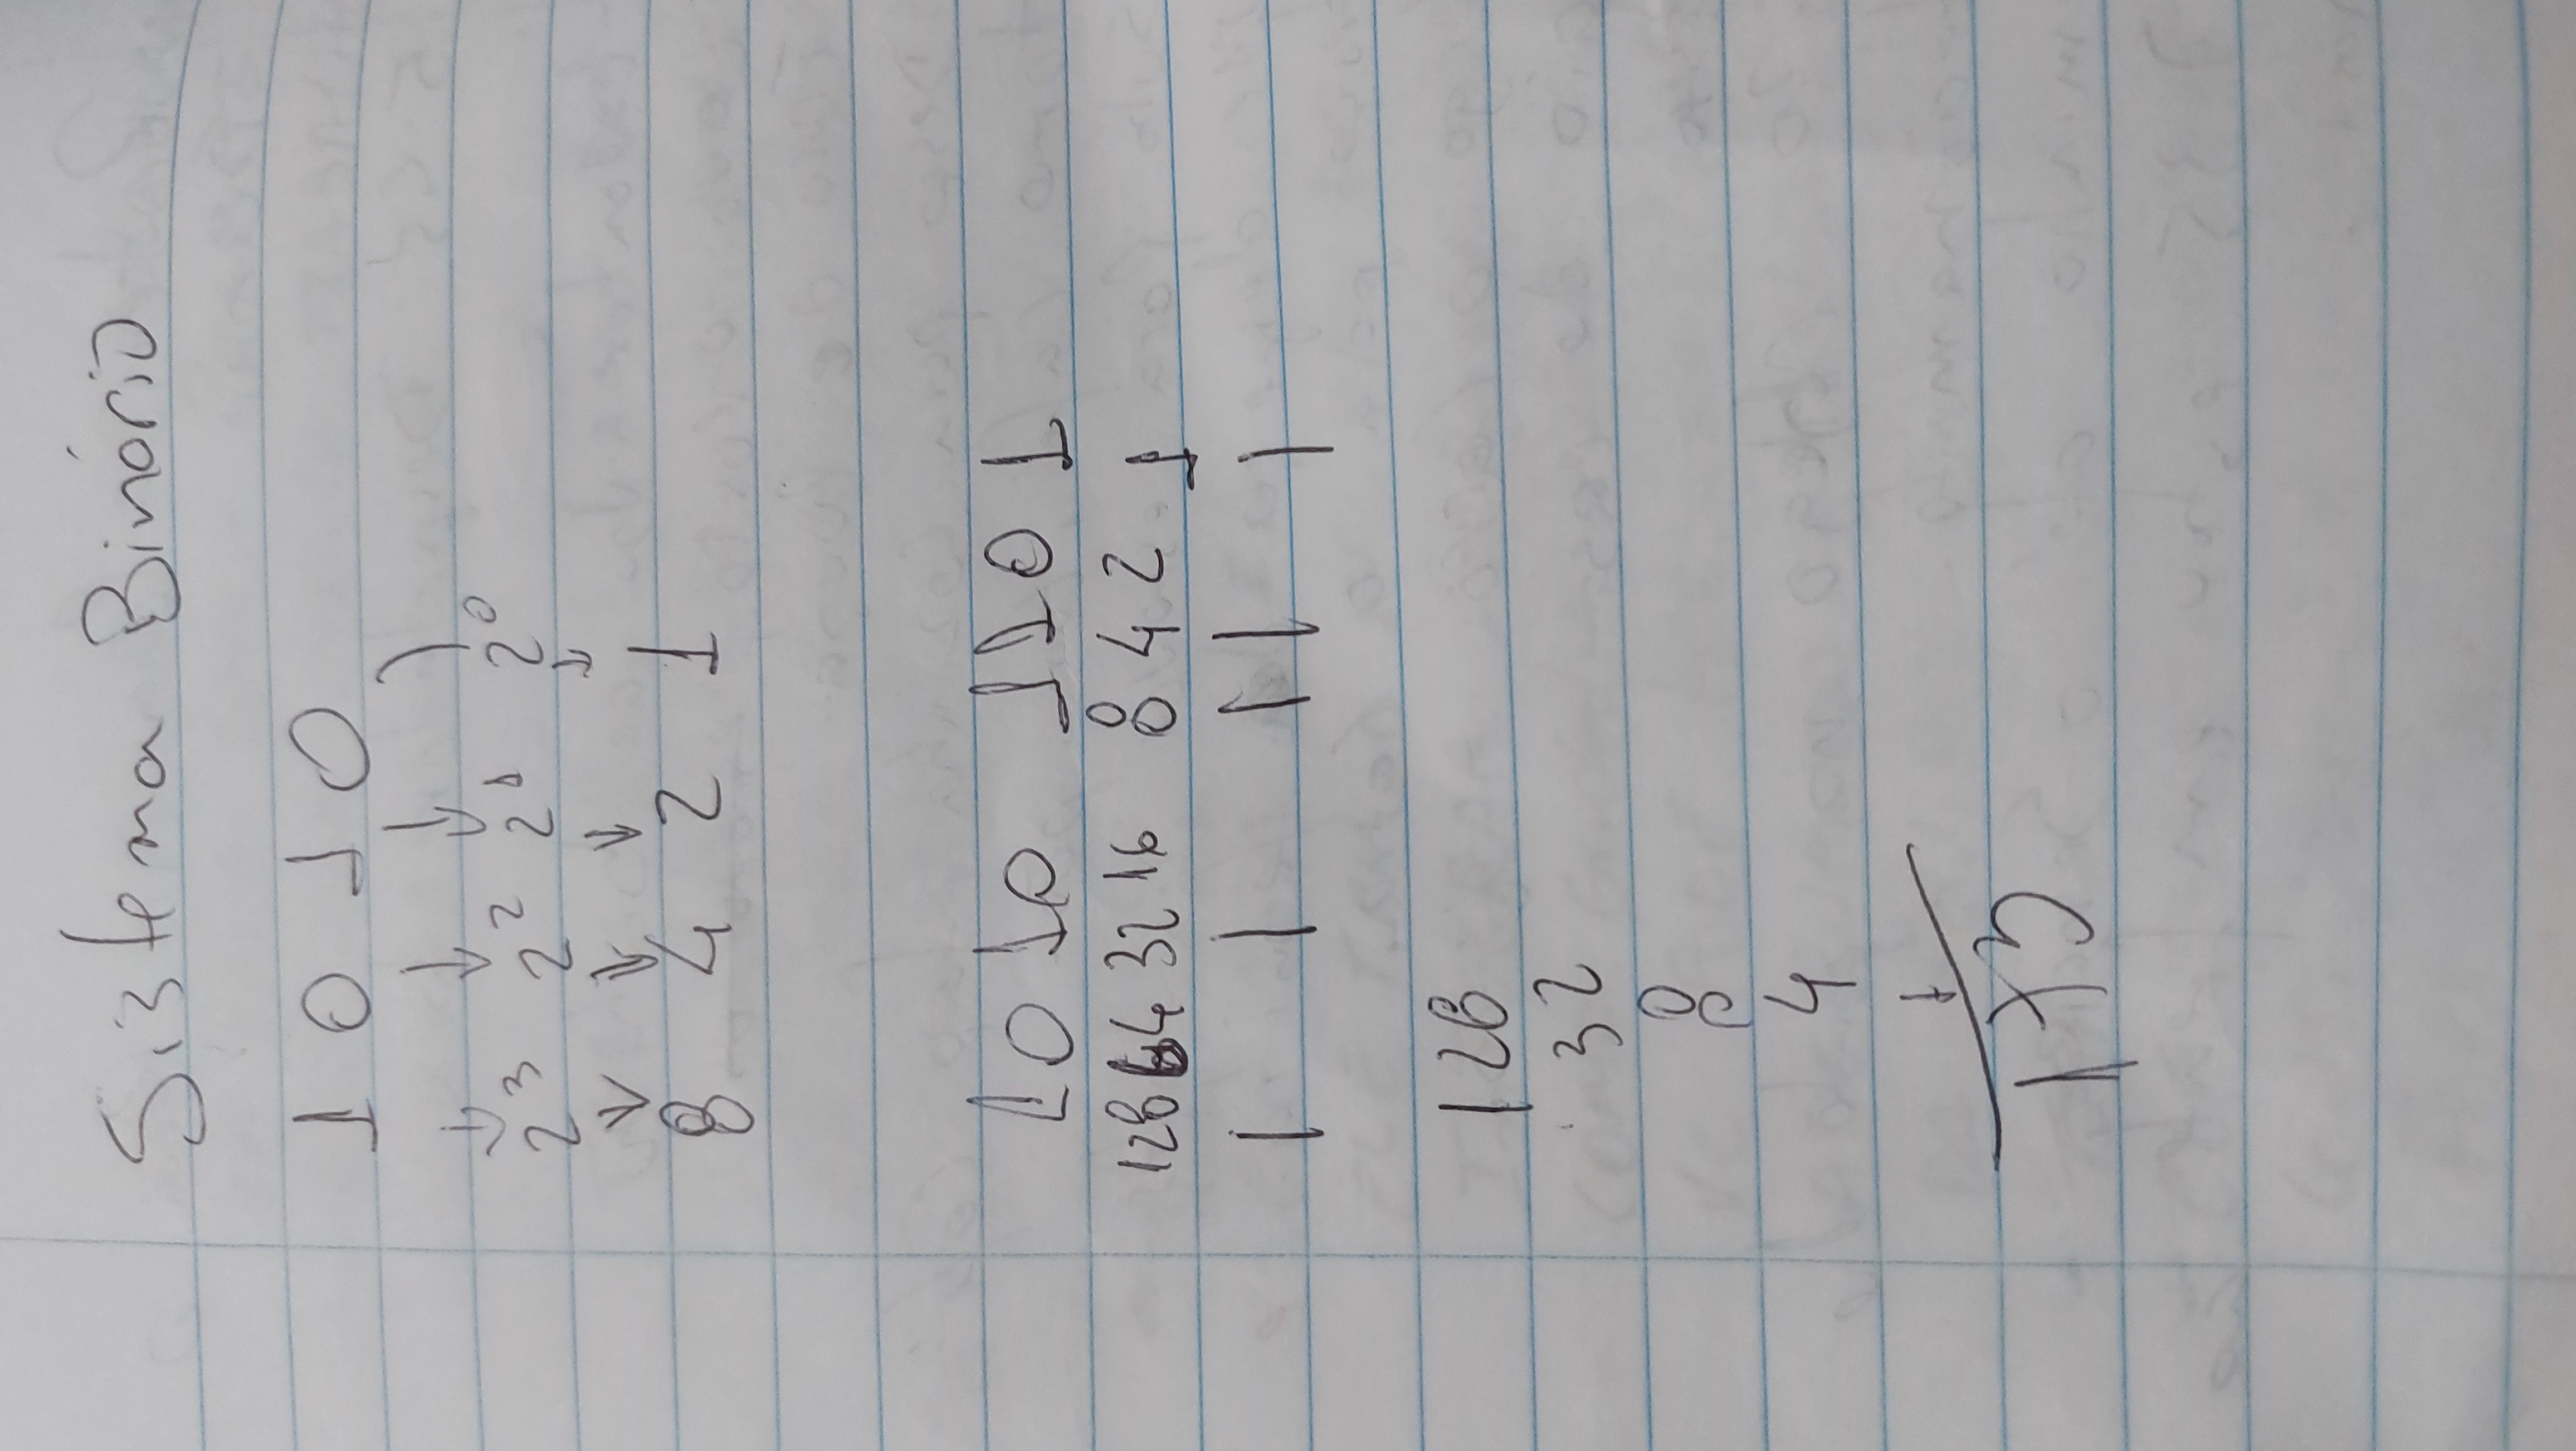 Sistema Binário
1 0 1 0
2³ 2² 2¹ 2⁰
8 4 2 1
1010 1101
128 64 32 16 8 4 2 1
128
32
8
4
1
173